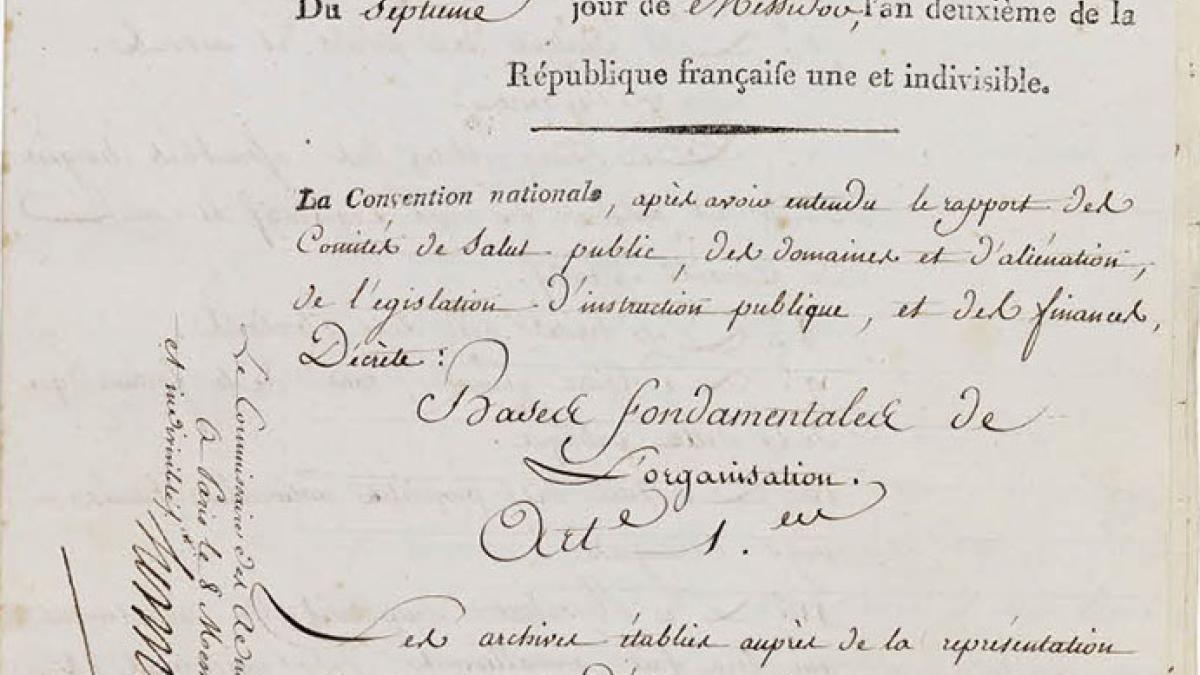 Du Septieme jour de Messidor, l'an deuxième de la
République françaiſe une et indiviſible.
La Convention nationale, après avoir entendu le rapport des
Comités de Salut public, des domaines et d'aliénation,
de l'égislation d'instruction publique, et des finances,
Décrète :
Bases fondamentales de
L'organisation.
Art.e 1.er
Les archives établies auprès de la représentation
Le Commissaire des
A Paris le 8
et indivisible